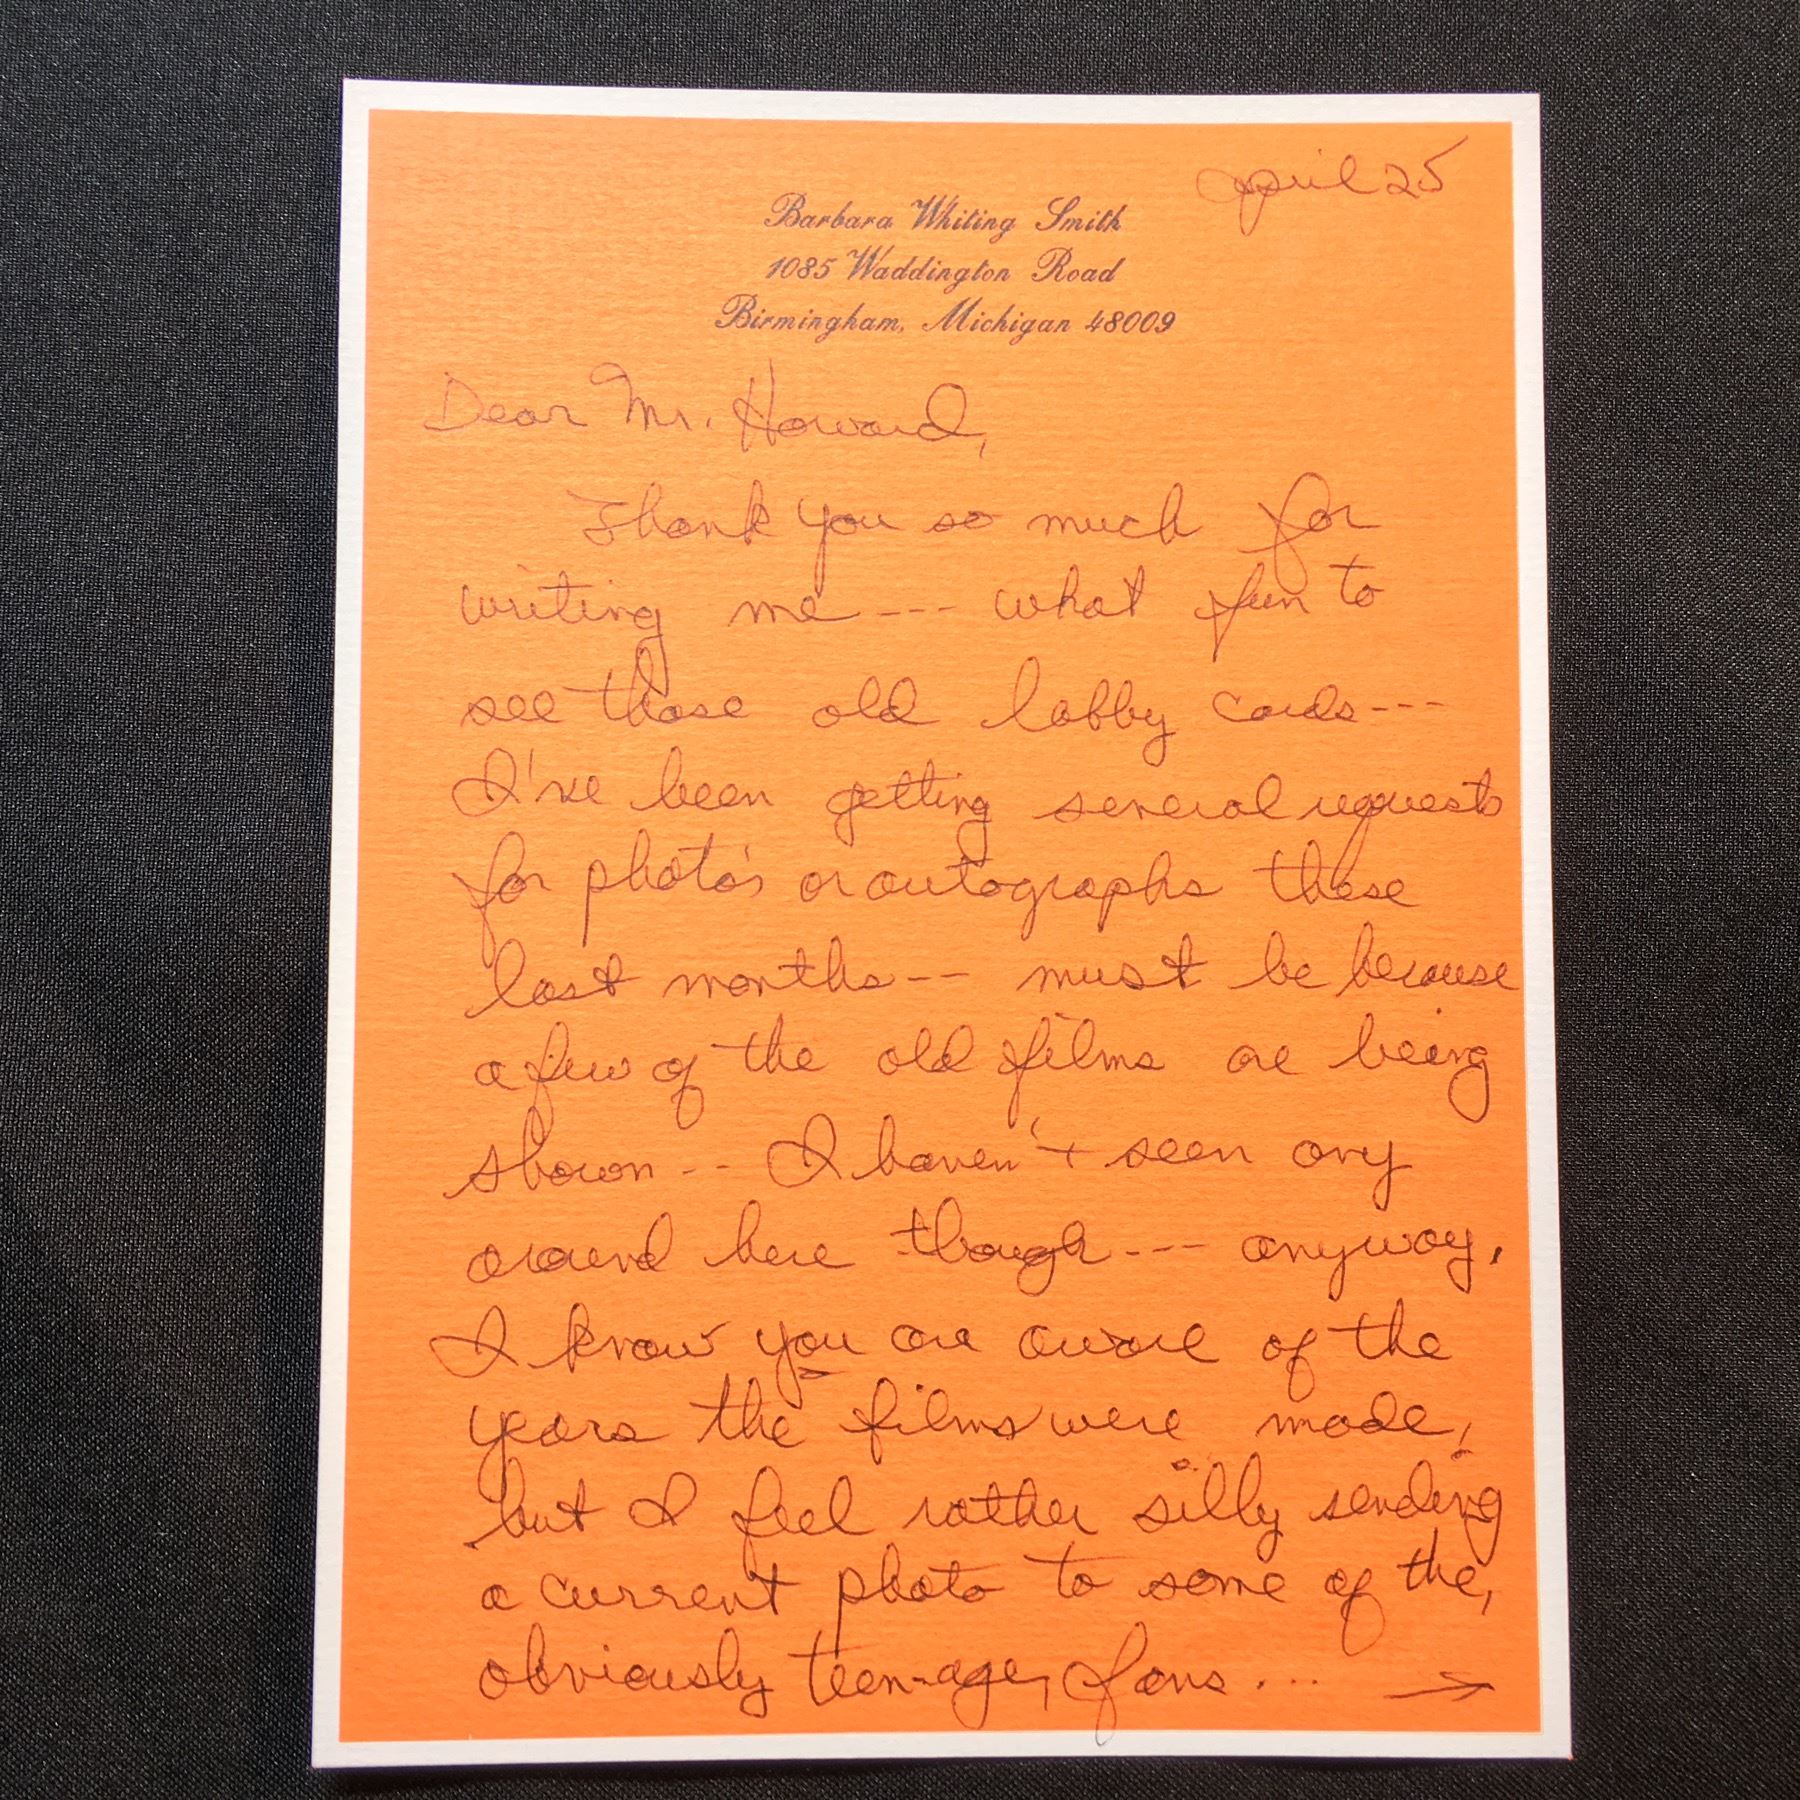 April 25
Barbara Whiting Smith
1085 Waddington Road
Birmingham, Michigan 48009
Dear Mr. Howard,
Thank you so much for
writing me --- what fun to
see those old lobby cards---
I've been getting several requests
for photo's or autographs these
last months-- must be because
a few of the old films are being
shown -- I haven't seen any
around here though --- anyway,
I know you are aware of the
years the films were made,
but I feel rather silly sending
a current photo to some of the,
obviously teen-age, fans... →